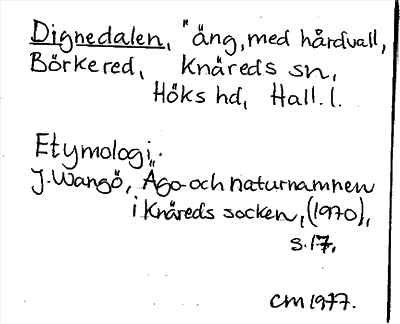 Dignedalen, "äng, med hårdvall,
Börkered, Knäreds sn,
Höks hd, Hall. l.
Etymologi:
J. Wangö, Ägo- och naturnamnen
i Knäreds socken, (1970),
s. 17.
CM 1977.